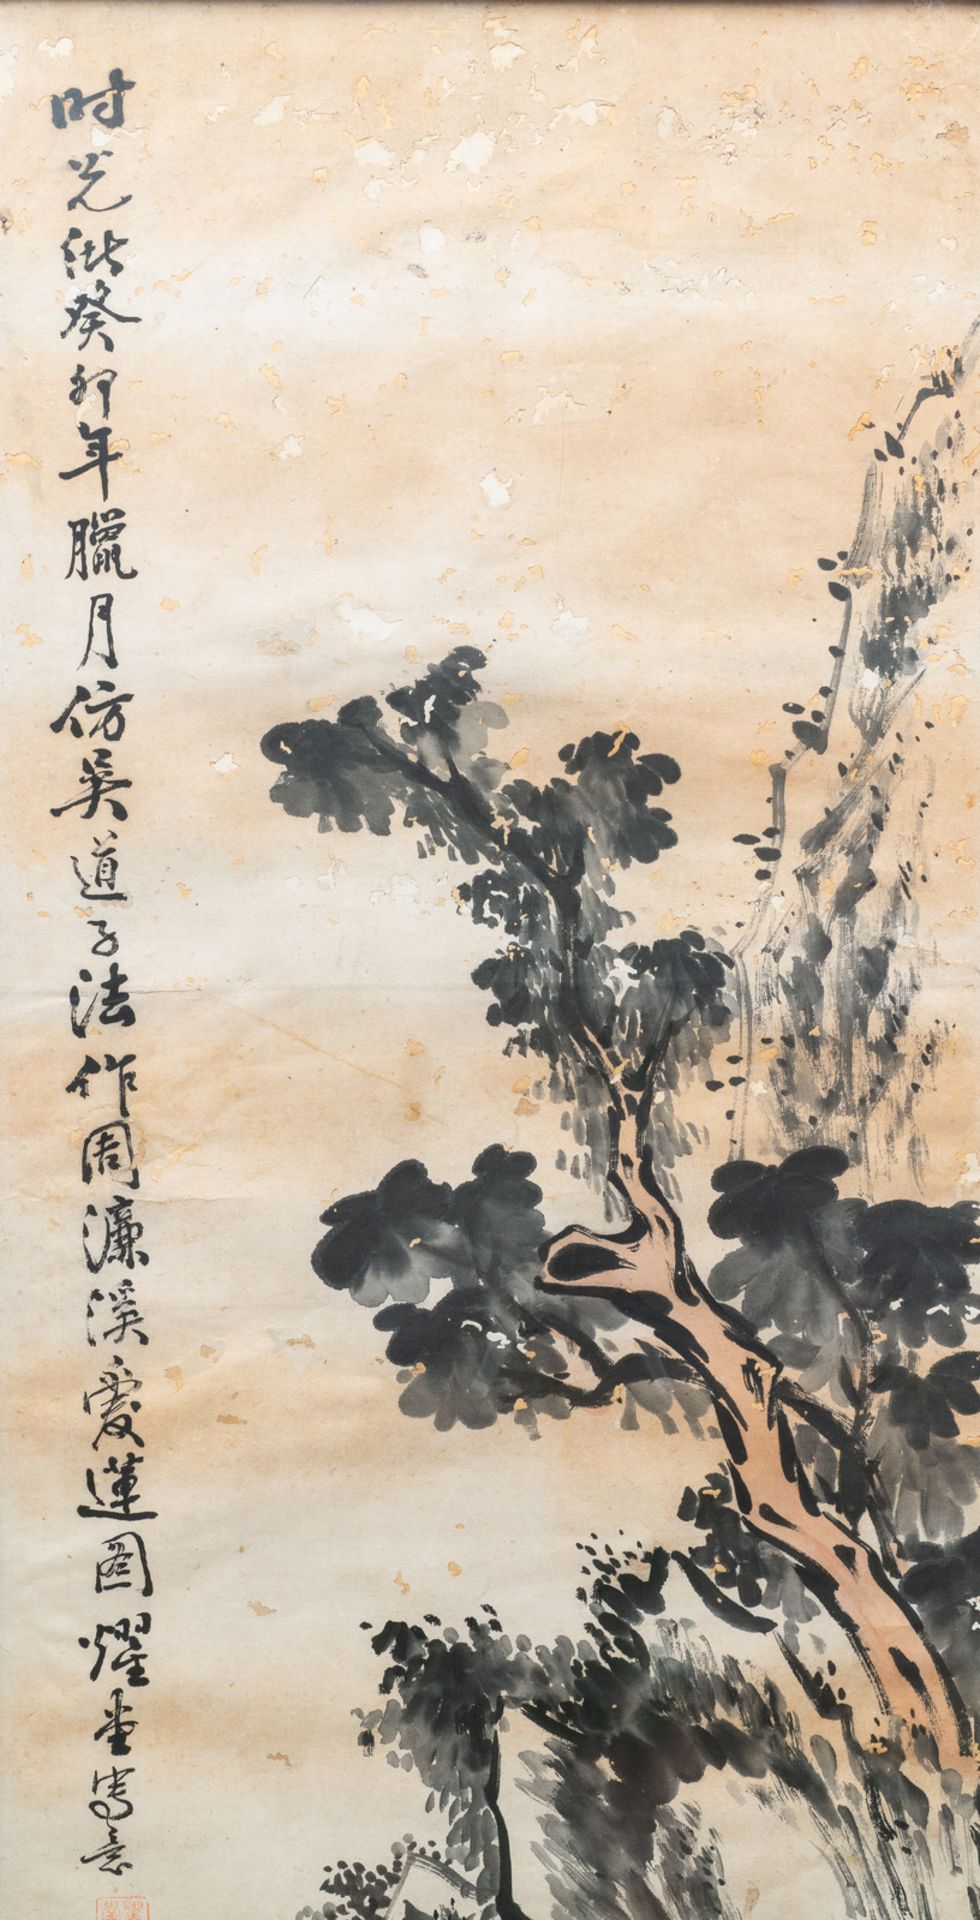 时光緒癸卯年臘月仿吴道子法作周濂溪爱蓮图燿堂寫意